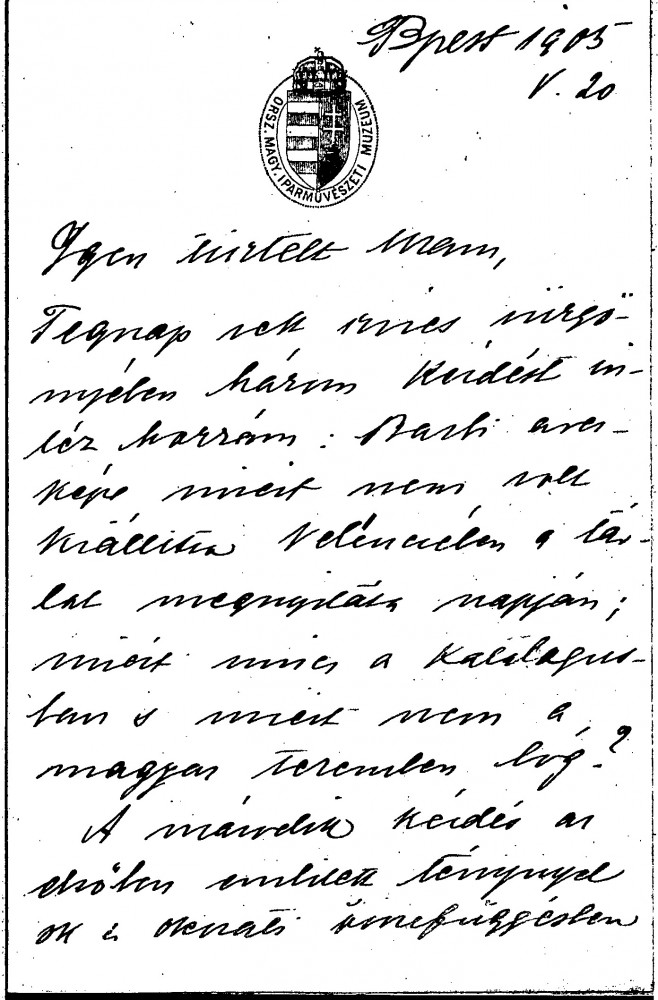 Bpest 1905
V. 20
ORSZ. MAGY. IPARMŰVÉSZETI MÚZEUM
Igen tisztelt Uram,
Tegnap vett sürgö-
nyében három kérdést in-
téz hozzám: Basti arcz-
képe miért nem volt
kiállítva Velenczében a tár-
lat megnyitása napján;
miért nincs a katalógus-
ban s miért nem a
magyar teremben lóg?
A második kérdés az
elsőben emlitett ténynyel
ok s okozati összefüggésben